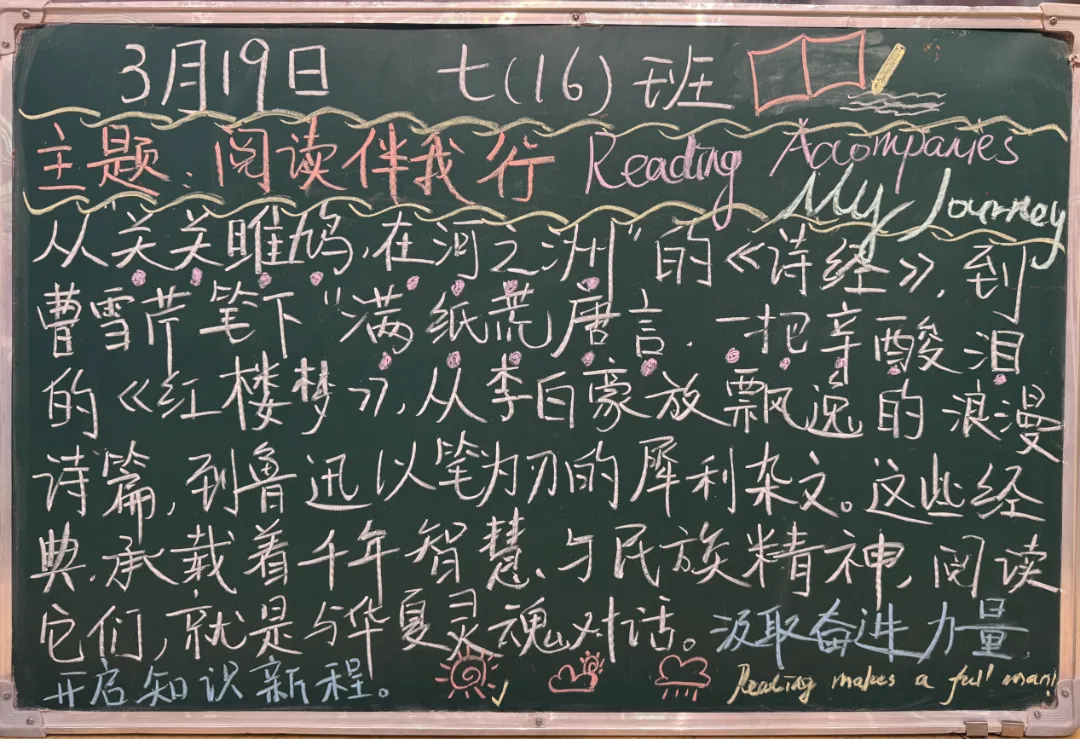 3月19日 七(16)班
主题:阅读伴我行 Reading Accompanies
My Journey
从“关关雎鸠,在河之洲”的《诗经》,到
曹雪芹笔下“满纸荒唐言,一把辛酸泪
的《红楼梦》,从李白豪放飘逸的浪漫
诗篇,到鲁迅以笔为刃的犀利杂文。这些经
典,承载着千年智慧、与民族精神,阅读
它们,就是与华夏灵魂对话。汲取奋进力量,
开启知识新程。 Reading makes a full man!